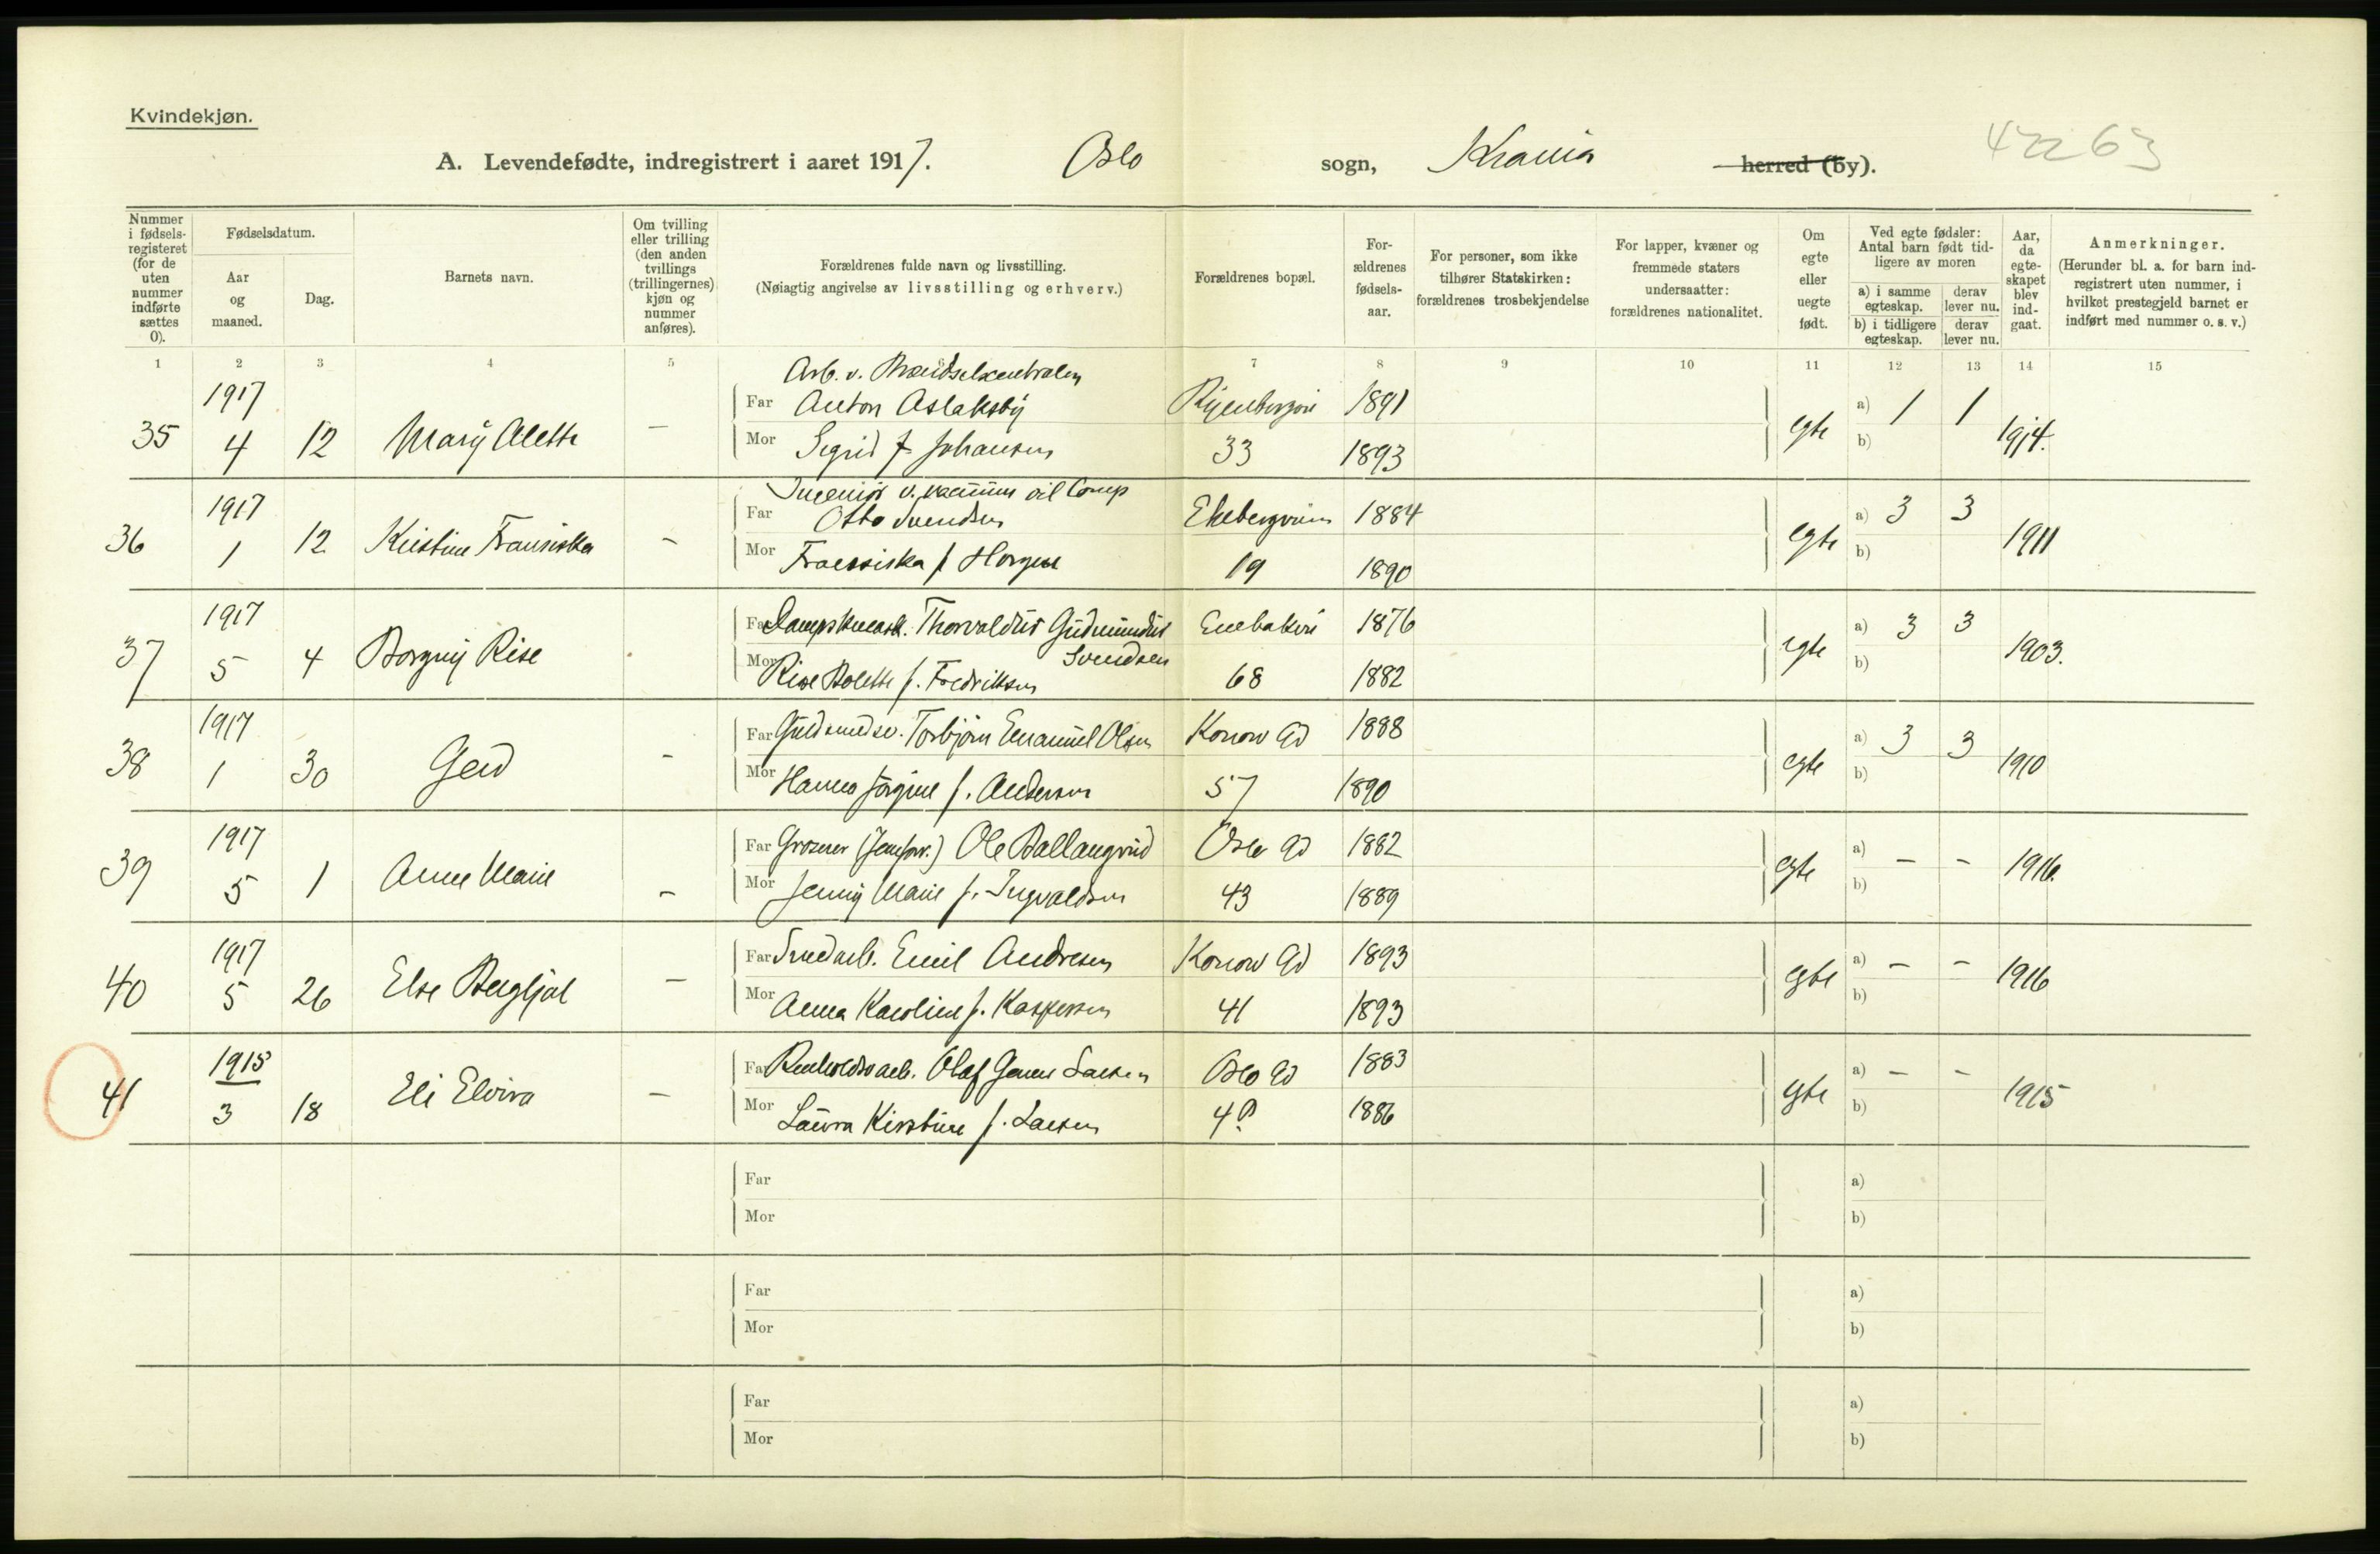 Kvindekjøn.
A. Levendefødte, indregistrert i aaret 1917. Oslo sogn, Krania herred (by). 42263
Nummer i fødsels-registeret (for de uten nummer indførte sættes 0).
Fødselsdatum.
Aar og maaned.
Dag.
Barnets navn.
Om tvilling eller trilling (den anden tvillings (trillingernes) kjøn og nummer anføres).
Forældrenes fulde navn og livsstilling.
(Nøiagtig angivelse av livsstilling og erhverv.)
Forældrenes bopæl.
For-ældrenes fødsels-aar.
For personer, som ikke tilhører Statskirken: forældrenes trosbekjendelse
For lapper, kvæner og fremmede staters undersaatter: forældrenes nationalitet.
Om egte eller uegte født.
Ved egte fødsler: Antal barn født tid-ligere av moren
a) i samme egteskap. derav lever nu.
b) i tidligere egteskap. derav lever nu.
Aar, da egte-skapet blev ind-gaat.
Anmerkninger.
(Herunder bl. a. for barn ind-registrert uten nummer, i hvilket prestegjeld barnet er indført med nummer o. s. v.)
1 2 3 4 5 7 8 9 10 11 12 13 14 15
Arb. v. Brændselscentralen
1917 Far Anton Aslaksby 1891 a) 1 1
35 4 12 Mary Alette — Mor Sigrid f. Johansen 33 1893 egte b) 1914.
Ingeniør v. vacuum oil Comp
1917 Far Otto Svendsen Ekebergveien 1884 a) 3 3
36 1 12 Kristine Fransiska – Mor Fransiska f Horgen 19 1890 egte b) 1911
1917 Far Thorvaldus Gudmundus Svendsen Enebakvei 1876 a) 3 3
37 5 4 Borgny Rise Mor Rise Bolette f. Fredriksen 68 1882 egte b) 1903.
1917 Far Guldsmedsv. Torbjørn Emanuel Olsen Konow Gd 1888 a) 3 3
38 1 30 Gerd - Mor Hanna Jørgine f. Andersen 57 1890 egte b) 1910
1917 Far Grosserer Ole Ballangrud Oslo Gd 1882 a) – –
39 5 1 Anne Marie – Mor Jenny Marie f. Ingvaldsen 43 1889 egte b) 1916.
1917 Far Smedarb. Emil Andresen Konow Gd 1893 a) – –
40 5 26 Else Bergljot — Mor Anna Karoline f. Kaspersen 41 1893 egte b) 1916
1915 Far Renholdsarb. Olaf Larsen Oslo Gd 1883 a) – –
41 3 18 Eli Elvira — Mor Laura Kirstine f. Larsen 1886 egte b) 1915
Far a)
Mor b)
Far a)
Mor b)
Far a)
Mor b)